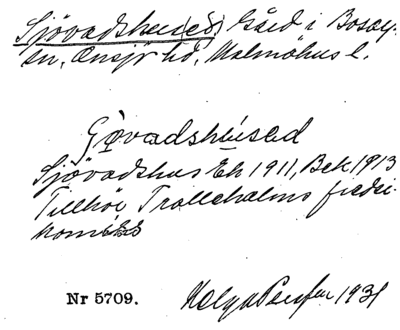 Sjövadshus(ed) Gård i Bosarp
sn, Onsjö hd, Malmöhus l.
Gøvadshúsed
Sjövadshus Ek 1911, Bek 1913
Tillhör Trolleholms fidei-
komiss
Nr 5709.
Helga 1931